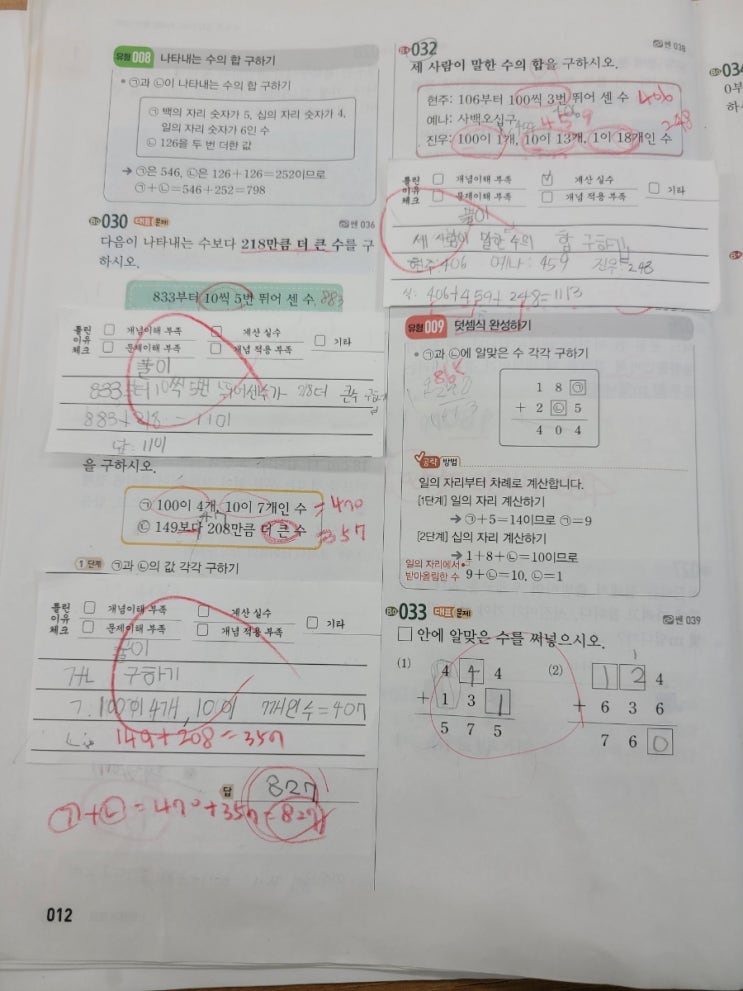 유형 008 나타내는 수의 합 구하기
• ㉠과 ㉡이 나타내는 수의 합 구하기
㉠ 백의 자리 숫자가 5, 십의 자리 숫자가 4,
일의 자리 숫자가 6인 수
㉡ 126을 두 번 더한 값
→ ㉠은 546, ㉡은 126+126=252이므로
㉠+㉡=546+252=798
030 대표 문제 쎈 036
다음이 나타내는 수보다 218만큼 더 큰 수를 구
하시오.
833부터 10씩 5번 뛰어 센 수. 883
틀린 이유 체크
개념이해 부족 계산 실수
문제이해 부족 개념 적용 부족 기타
풀이
833부터 10씩 5번 뛰어선수가 218더 큰수
883+218=1101
답: 1101
을 구하시오.
㉠ 100이 4개, 10이 7개인 수 =470
㉡ 149보다 208만큼 더 큰 수 =357
1단계 ㉠과 ㉡의 값 각각 구하기
틀린 이유 체크
개념이해 부족 계산 실수
문제이해 부족 개념 적용 부족 기타
풀이
구하기
ㄱ: 100이 4개, 10이 7개인수=407
149+208=357
답 827
㉠+㉡=470+357=827
012
032 쎈 038
세 사람이 말한 수의 합을 구하시오.
현주: 106부터 100씩 3번 뛰어 센 수 406
예나: 사백오십구 459
진우: 100이 1개, 10이 13개, 1이 18개인 수 248
틀린 이유 체크
개념이해 부족 계산 실수
문제이해 부족 개념 적용 부족 기타
풀이
세 사람이 말한 수의 합 구하기
현주:406 예나:459 진우:248
식: 406+459+248=1113
유형 009 덧셈식 완성하기
• ㉠과 ㉡에 알맞은 수 각각 구하기
1 8 ㉠
+ 2 ㉡ 5
4 0 4
공략 방법
일의 자리부터 차례로 계산합니다.
[1단계] 일의 자리 계산하기
→ ㉠+5=14이므로 ㉠=9
[2단계] 십의 자리 계산하기
→ 1+8+㉡=10이므로
일의 자리에서
받아올림한 수 9+㉡=10, ㉡=1
033 대표 문제 쎈 039
□ 안에 알맞은 수를 써넣으시오.
(1) 4 4 4
+ 1 3 1
5 7 5
(2) 1
1 2 4
+ 6 3 6
7 6 0
034
0부
하